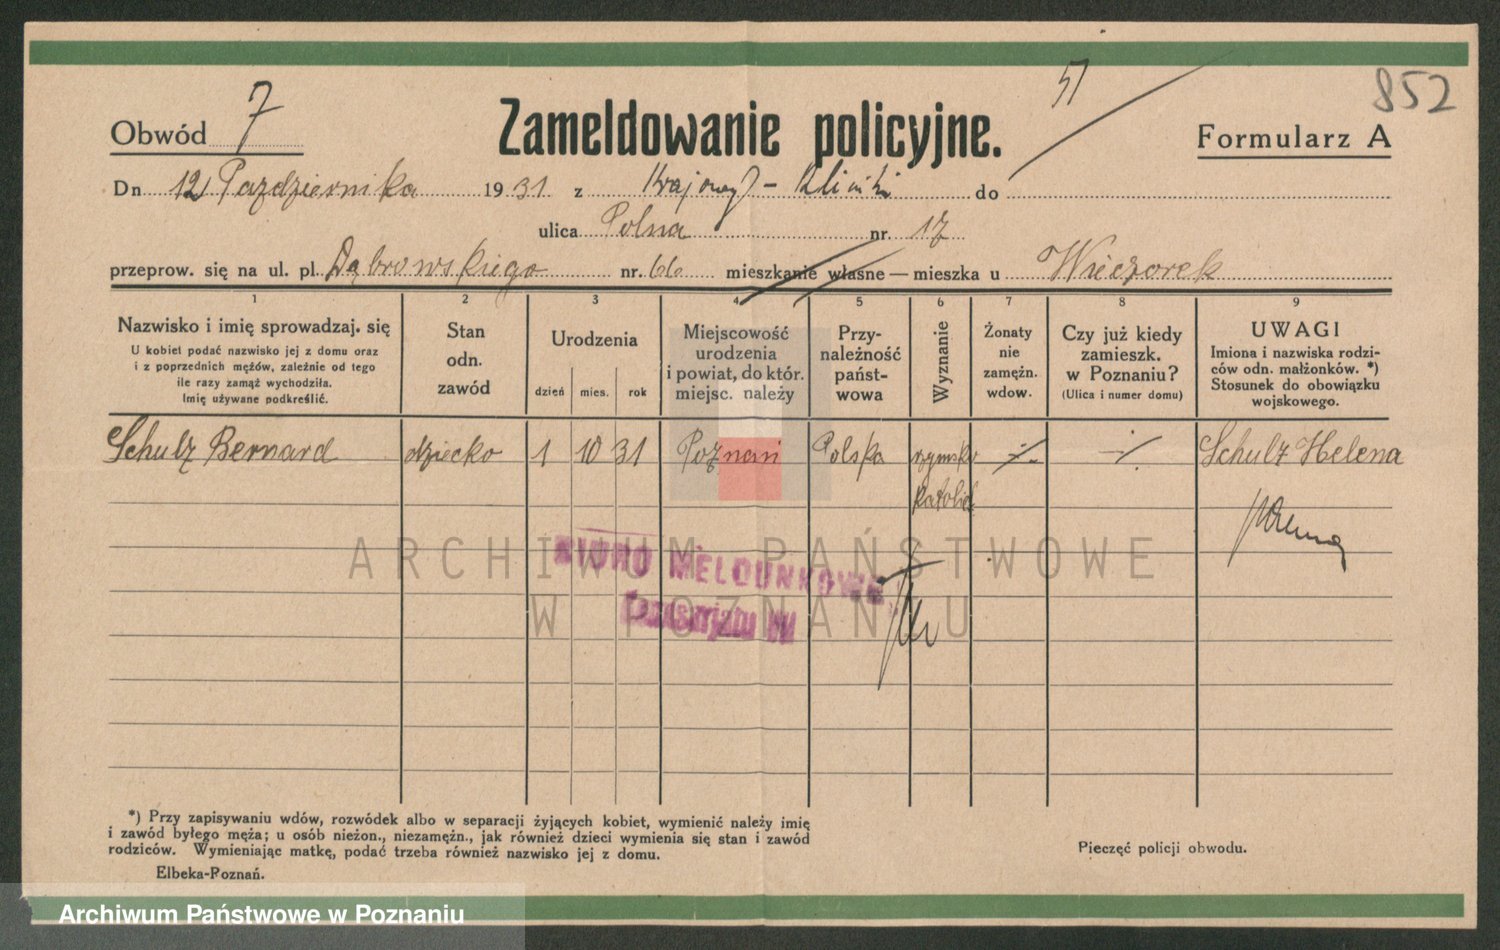 852
51
Obwód 7
Zameldowanie policyjne.
Formularz A
Dn. 12 Pazdziernika 1931 z Krajowej - Kliniki do
ulica Polna nr. 17
przeprow. się na ul. pl. Dąbrowskiego nr. 66 mieszkanie własne — mieszka u Wieczorek
1 2 3 4 5 6 7 8 9
Nazwisko i imię sprowadzaj. się
U kobiet podać nazwisko jej z domu oraz
i z poprzednich mężów, zależnie od tego
ile razy zamąż wychodziła.
Imię używane podkreślić.
Stan
odn.
zawód
Urodzenia
dzień mies. rok
Miejscowość
urodzenia
i powiat, do któr.
miejsc. należy
Przy-
należność
państ-
wowa
Wyznanie
Żonaty
nie
zamężn.
wdow.
Czy już kiedy
zamieszk.
w Poznaniu?
(Ulica i numer domu)
UWAGI
Imiona i nazwiska rodzi-
ców odn. małżonków. *)
Stosunek do obowiązku
wojskowego.
Schulz Bernard dziecko 1 10 31 Poznań Polska rzymsko ÷ ÷ Schulz Helena
katolick
BIURO MELDUNKOWE
Komisarjatu IV
ARCHIWUM PAŃSTWOWE
W POZNANIU
*) Przy zapisywaniu wdów, rozwódek albo w separacji żyjących kobiet, wymienić należy imię
i zawód byłego męża; u osób nieżon., niezamężn., jak również dzieci wymienia się stan i zawód
rodziców. Wymieniając matkę, podać trzeba również nazwisko jej z domu.
Elbeka-Poznań.
Pieczęć policji obwodu.
Archiwum Państwowe w Poznaniu